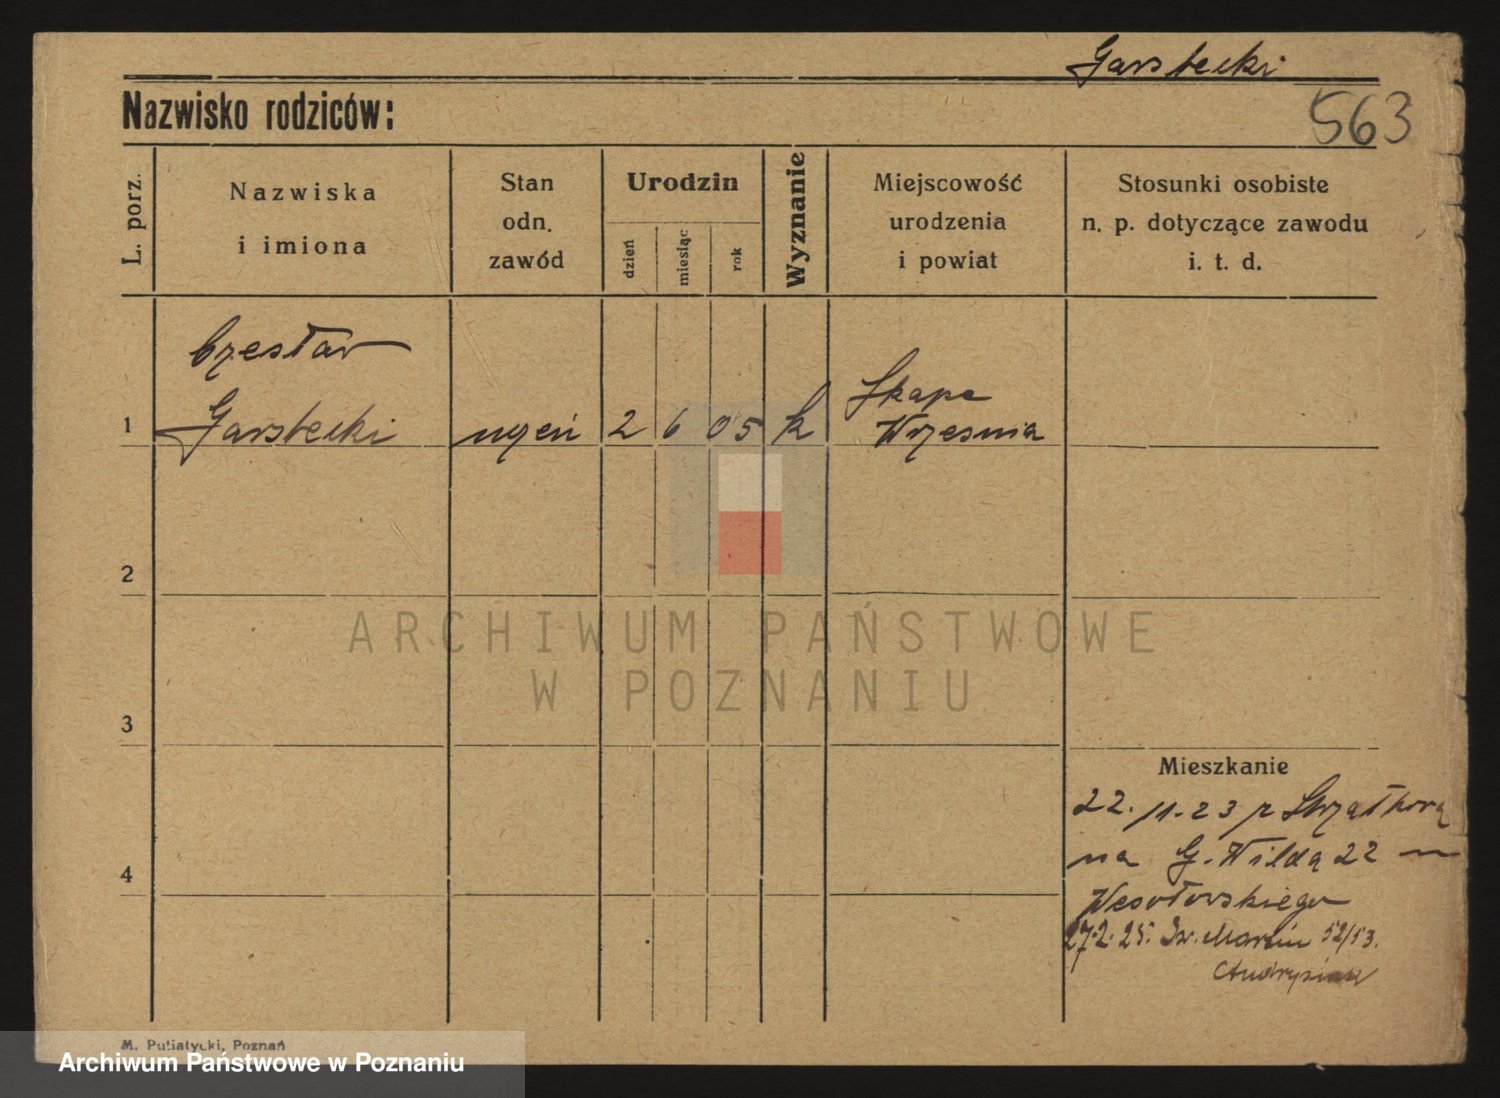 Garstecki
Nazwisko rodziców:
563
L. porz.
Nazwiska
i imiona
Stan
odn.
zawód
Urodzin
dzień
miesiąc
rok
Wyznanie
Miejscowość
urodzenia
i powiat
Stosunki osobiste
n. p. dotyczące zawodu
i. t. d.
1
Czesław
Garstecki
uczeń
2
6
05
k
Skape
Wrzesnia
2
3
4
Mieszkanie
22. 11. 23 z Strzałkową
na G. Wildą 22
Wesołowskiego
27.2.25. Św. Marcin 52/53.
Andrysiak
ARCHIWUM PAŃSTWOWE
W POZNANIU
M. Putiatycki, Poznań
Archiwum Państwowe w Poznaniu